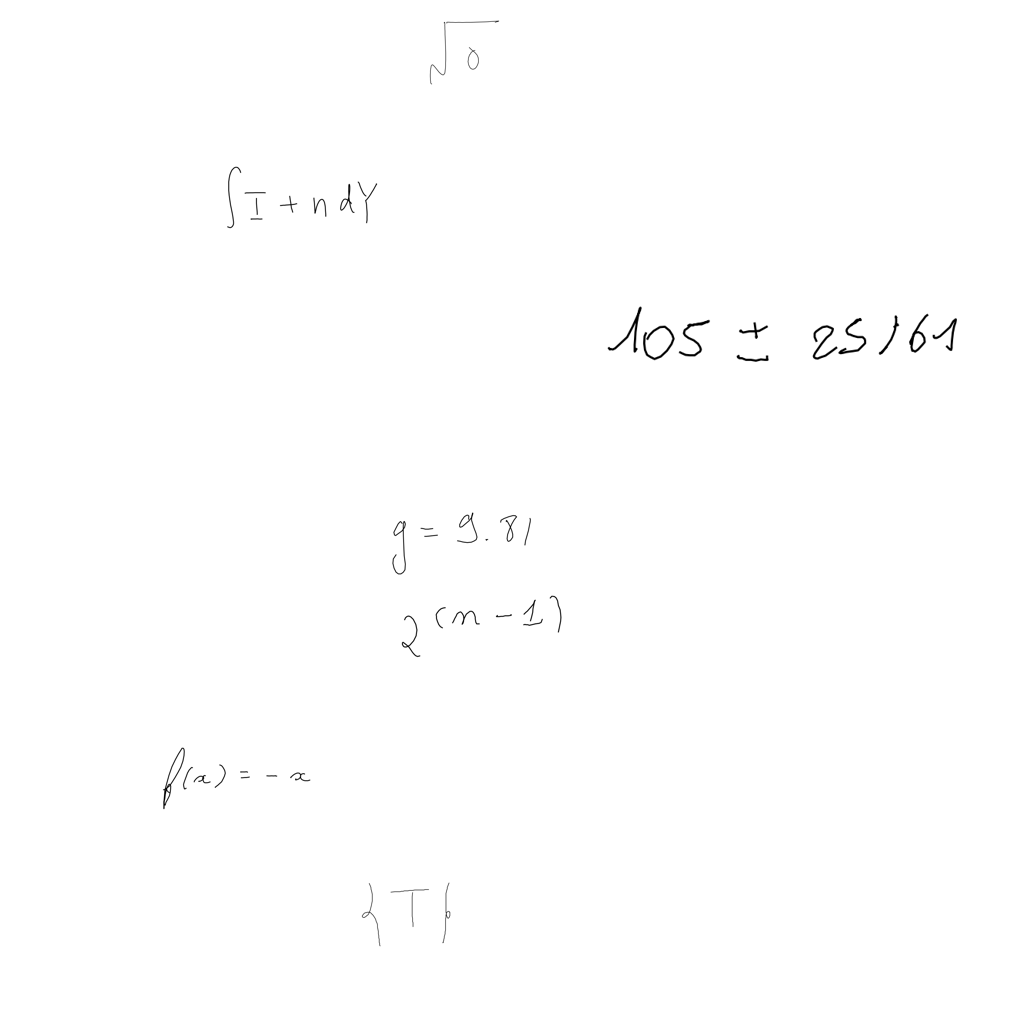 √0
∫I + n dY
105 ± 25/61
g = 9.81
2^(n - 1)
f(x) = - x
{T}